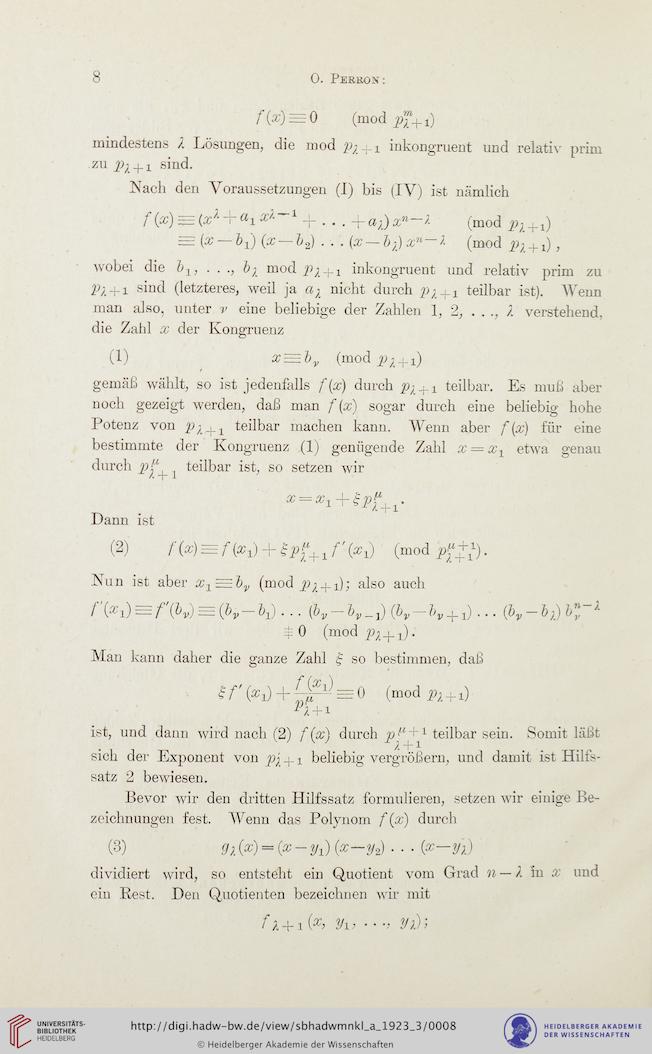 8 O. Perron:
f(x) ≡ 0 (mod p_{λ+1}^m)
mindestens λ Lösungen, die mod p_{λ+1} inkongruent und relativ prim
zu p_{λ+1} sind.
Nach den Voraussetzungen (I) bis (IV) ist nämlich
f(x) ≡ (x^λ + a_1 x^{λ−1} + . . . + a_λ) x^{n−λ} (mod p_{λ+1})
≡ (x − b_1) (x − b_2) . . . (x − b_λ) x^{n−λ} (mod p_{λ+1}),
wobei die b_1, . . ., b_λ mod p_{λ+1} inkongruent und relativ prim zu
p_{λ+1} sind (letzteres, weil ja a_λ nicht durch p_{λ+1} teilbar ist). Wenn
man also, unter ν eine beliebige der Zahlen 1, 2, . . ., λ verstehend,
die Zahl x der Kongruenz
(1) x ≡ b_ν (mod p_{λ+1})
gemäß wählt, so ist jedenfalls f(x) durch p_{λ+1} teilbar. Es muß aber
noch gezeigt werden, daß man f(x) sogar durch eine beliebig hohe
Potenz von p_{λ+1} teilbar machen kann. Wenn aber f(x) für eine
bestimmte der Kongruenz (1) genügende Zahl x = x_1 etwa genau
durch p_{λ+1}^μ teilbar ist, so setzen wir
x = x_1 + ξ p_{λ+1}^μ.
Dann ist
(2) f(x) ≡ f(x_1) + ξ p_{λ+1}^μ f′(x_1) (mod p_{λ+1}^{μ+1}).
Nun ist aber x_1 ≡ b_ν (mod p_{λ+1}); also auch
f′(x_1) ≡ f′(b_ν) ≡ (b_ν − b_1) . . . (b_ν − b_{ν−1}) (b_ν − b_{ν+1}) . . . (b_ν − b_λ) b_ν^{n−λ}
≢ 0 (mod p_{λ+1}).
Man kann daher die ganze Zahl ξ so bestimmen, daß
ξ f′(x_1) + f(x_1)/p_{λ+1}^μ ≡ 0 (mod p_{λ+1})
ist, und dann wird nach (2) f(x) durch p_{λ+1}^{μ+1} teilbar sein. Somit läßt
sich der Exponent von p_{λ+1} beliebig vergrößern, und damit ist Hilfs-
satz 2 bewiesen.
Bevor wir den dritten Hilfssatz formulieren, setzen wir einige Be-
zeichnungen fest. Wenn das Polynom f(x) durch
(3) g_λ(x) = (x − y_1) (x − y_2) . . . (x − y_λ)
dividiert wird, so entsteht ein Quotient vom Grad n − λ in x und
ein Rest. Den Quotienten bezeichnen wir mit
f_{λ+1}(x, y_1, . . ., y_λ);
UNIVERSITÄTS-
BIBLIOTHEK
HEIDELBERG
http://digi.hadw-bw.de/view/sbhadwmnkl_a_1923_3/0008
© Heidelberger Akademie der Wissenschaften
HEIDELBERGER AKADEMIE
DER WISSENSCHAFTEN